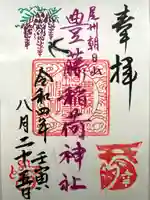 奉拝
尾州朝日
豊藤稲荷神社
令和四年壬寅
八月二十